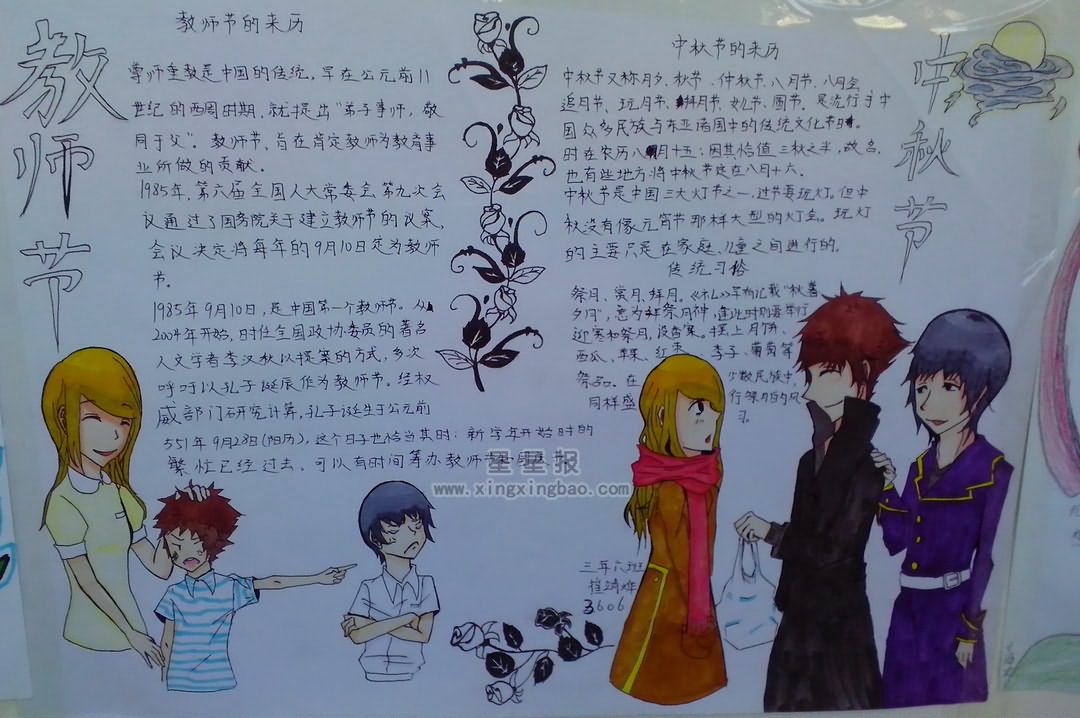 教师节
教师节的来历
尊师重教是中国的传统，早在公元前11
世纪的西周时期，就提出“弟子事师，敬
同于父”。教师节，旨在肯定教师为教育事
业所做的贡献。
1985年，第六届全国人大常委会第九次会
议通过了国务院关于建立教师节的议案，
会议决定将每年的9月10日定为教师
节。
1985年9月10日，是中国第一个教师节。从
2004年开始，时任全国政协委员的著名
人文学者李汉秋以提案的方式，多次
呼吁以孔子诞辰作为教师节。经权
威部门研究计算，孔子诞生于公元前
551年9月28日(阳历)，这个日子也恰当其时：新学年开始时的
繁忙已经过去，可以有时间筹办教师节
中秋节
中秋节的来历
中秋节又称月夕、秋节、仲秋节、八月节、八月会
追月节、玩月节、拜月节、女儿节、团节。是流行于中
国众多民族与东亚诸国中的传统文化节日，
时在农历八月十五；因其恰值三秋之半，故名，
也有些地方将中秋节定在八月十六。
中秋节是中国三大灯节之一，过节要玩灯。但中
秋没有像元宵节那样大型的灯会。玩灯
的主要只是在家庭、儿童之间进行的。
传统习俗
祭月、赏月、拜月。《礼》早有记载“秋暮
夕月”，意为拜祭月神，逢此时则要举行
迎寒和祭月，设香案。摆上月饼、
西瓜、苹果、红枣、李子、葡萄等
祭品。在 少数民族中，
同样盛 行祭月的风
习。
星星报
www.xingxingbao.com
三年六班
3606